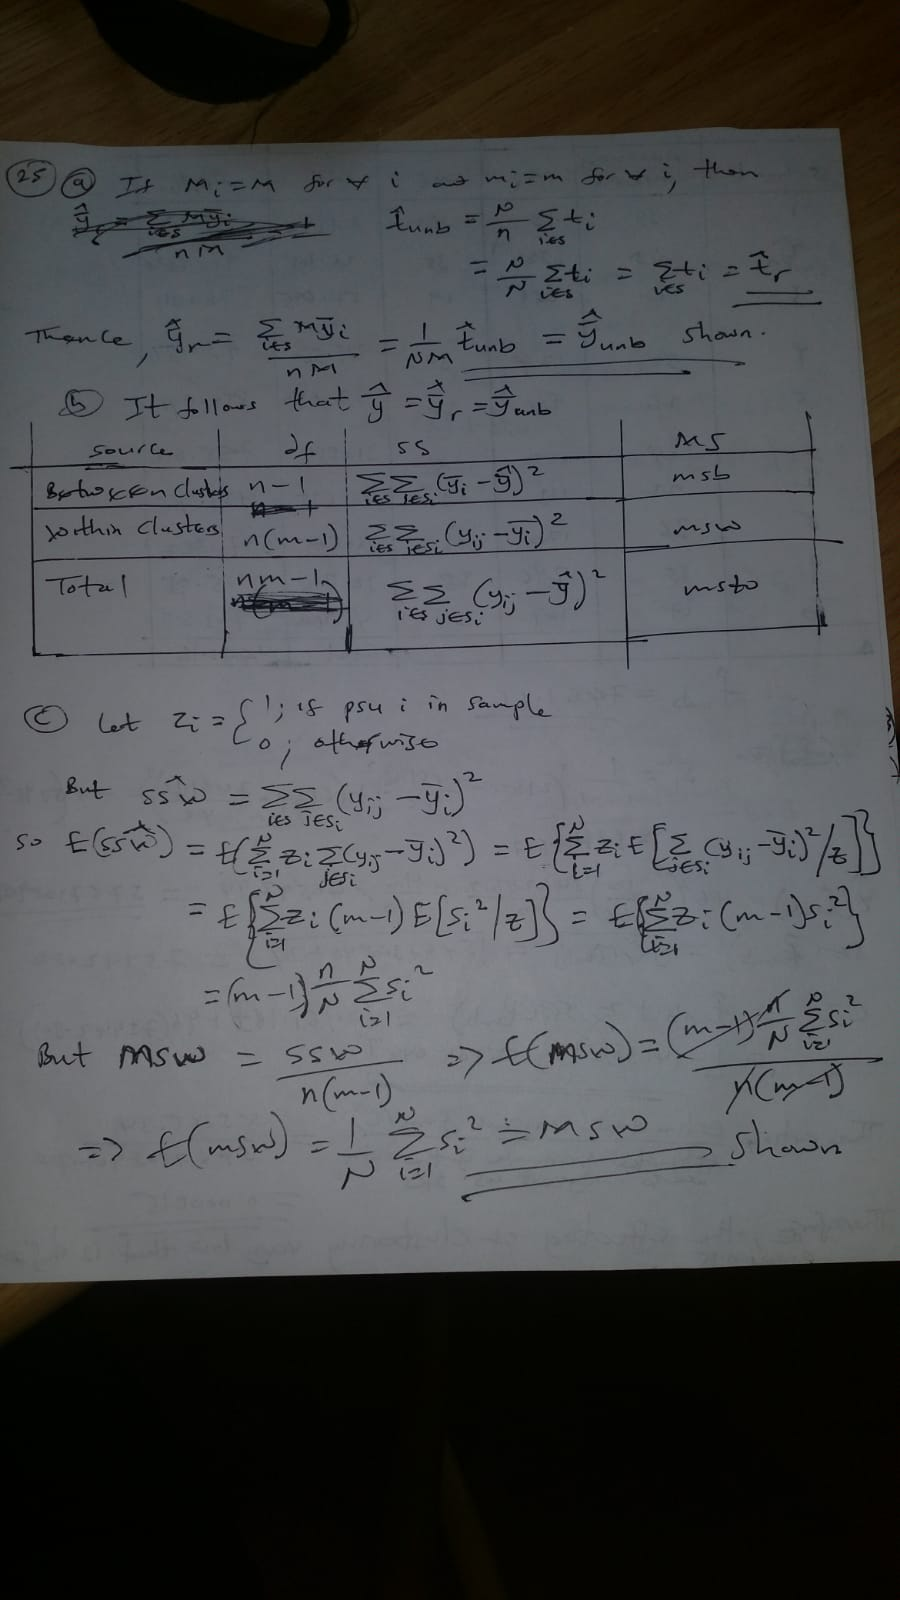 25 (a) If Mi = M for ∀ i and mi = m for ∀ i, then
t̂unb = N/n Σi∈s ti
= N/N Σi∈s ti = Σi∈s ti = t̂r
Thence, ŷ̄r = Σi∈s Mȳi / nM = 1/NM t̂unb = ŷ̄unb shown.
(b) It follows that ŷ̄ = ŷ̄r = ŷ̄unb
source df SS MS
Between clusters n-1 Σi∈s Σj∈si (ȳi - ŷ̄)² msb
Within clusters n(m-1) Σi∈s Σj∈si (yij - ȳi)² msw
Total nm-1 Σi∈s Σj∈si (yij - ŷ̄)² msto
(c) Let Zi = { 1; if psu i in sample
0; otherwise
But ssŵ = Σi∈s Σj∈si (yij - ȳi)²
so E(ssŵ) = E(Σi=1^N Zi Σj∈si (yij - ȳi)²) = E{Σi=1^N Zi E[Σj∈si (yij - ȳi)²/Z]}
= E{Σi=1^N Zi (m-1) E[si²/Z]} = E{Σi=1^N Zi (m-1) Si²}
= (m-1) n/N Σi=1^N Si²
But msw = ssw / n(m-1) => E(msw) = (m-1) n/N Σi=1^N Si² / n(m-1)
=> E(msw) = 1/N Σi=1^N Si² = MSW shown